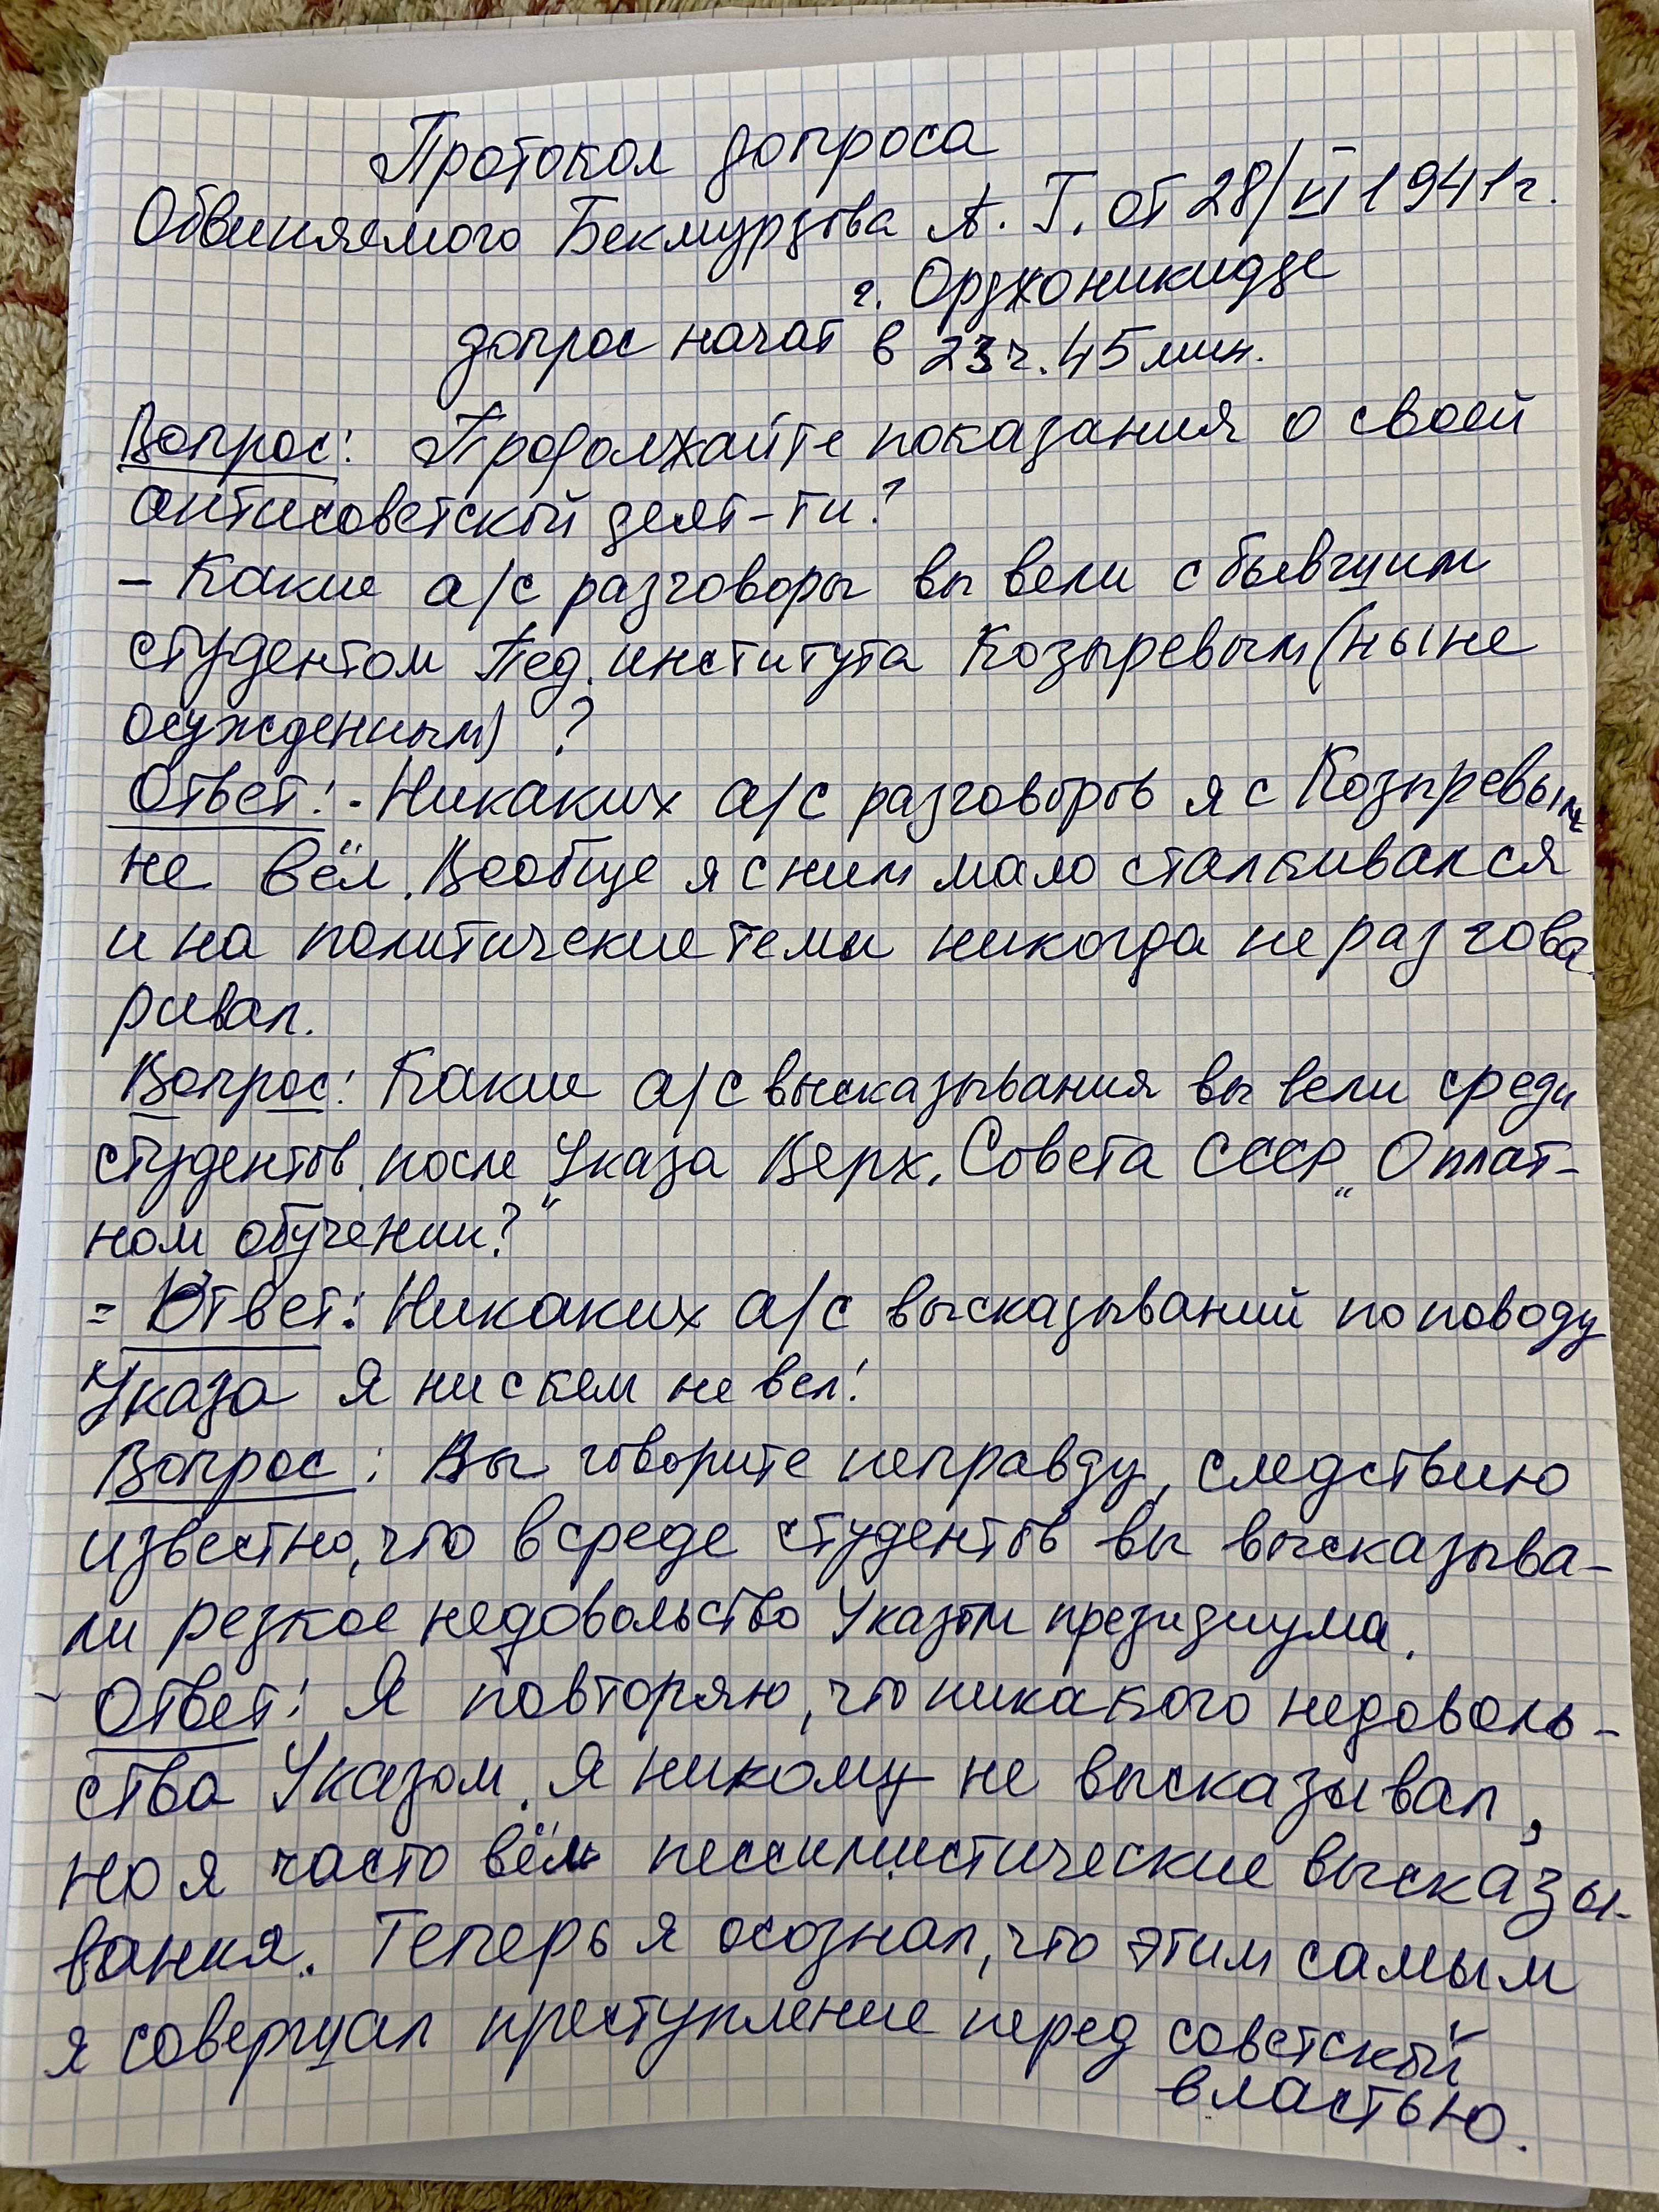 Протокол допроса
Обвиняемого Бекмурзова А. Г. от 28/VI 1941г.
г. Орджоникидзе
допрос начат в 23ч. 45 мин.
Вопрос: Продолжайте показания о своей
антисоветской деят-ти?
- Какие а/с разговоры вы вели с бывшим
студентом Пед. института Козыревым (ныне
осужденным) ?
Ответ: - Никаких а/с разговоров я с Козыревым
не вёл. Вообще я с ним мало сталкивался
и на политические темы никогда не разгова-
ривал.
Вопрос: Какие а/с высказывания вы вели среди
студентов после Указа Верх. Совета СССР „О плат-
ном обучении?"
= Ответ: Никаких а/с высказываний по поводу
Указа я ни с кем не вел!
Вопрос: Вы говорите неправду, следствию
известно, что в среде студентов вы высказыва-
ли резкое недовольство Указом президиума.
- Ответ: Я повторяю, что никакого недоволь-
ства Указом я никому не высказывал,
но я часто вёл пессимистические высказы-
вания. Теперь я осознал, что этим самым
я совершал преступление перед советской
властью.